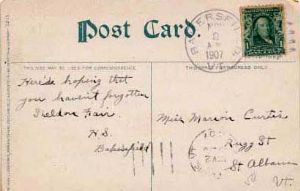 Post Card.
THIS SPACE MAY BE USED FOR CORRESPONDENCE
BAKERSFIELD
1907
Here's hoping that
you haven't forgotten
Sheldon Fair.
H.S.
Bakersfield
Miss Marion Curtis
Rugg St
St Albans
Vt.